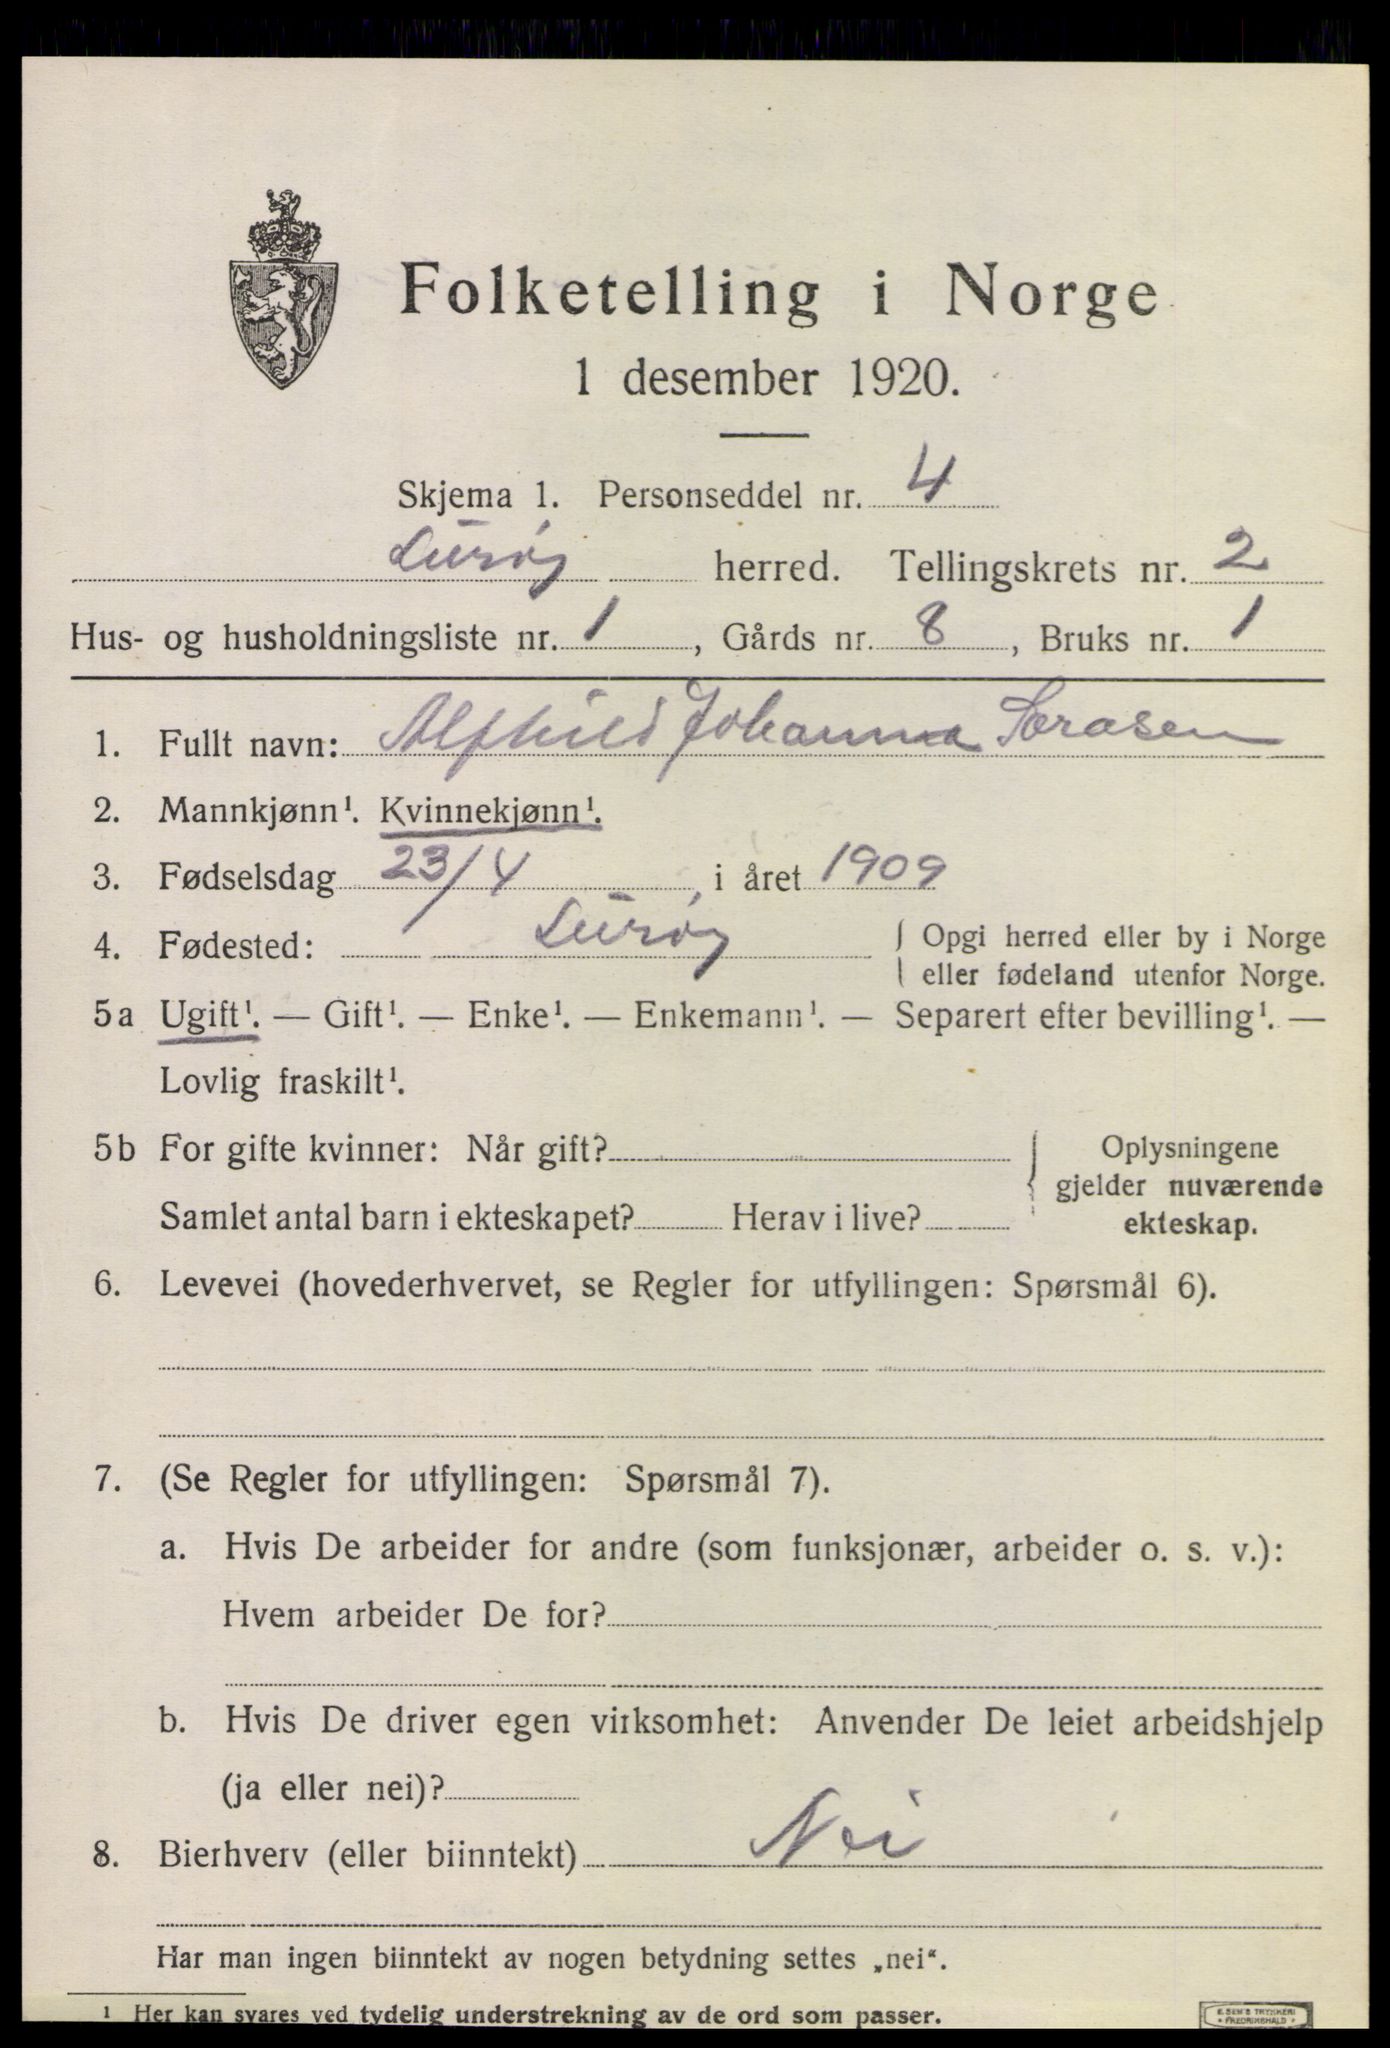 Folketelling i Norge
1 desember 1920.
Skjema 1. Personseddel nr. 4
Lurøy herred. Tellingskrets nr. 2
Hus- og husholdningsliste nr. 1, Gårds nr. 8, Bruks nr. 1
1. Fullt navn: Alfhild Johanna
2. Mannkjønn¹. Kvinnekjønn¹.
3. Fødselsdag 23/4, i året 1909
4. Fødested: Lurøy { Opgi herred eller by i Norge
eller fødeland utenfor Norge.
5a Ugift¹. — Gift¹. — Enke¹. — Enkemann¹. — Separert efter bevilling¹. —
Lovlig fraskilt¹.
5b For gifte kvinner: Når gift?
Samlet antal barn i ekteskapet? Herav i live?
{ Oplysningene
gjelder nuværende
ekteskap.
6. Levevei (hovederhvervet, se Regler for utfyllingen: Spørsmål 6).
7. (Se Regler for utfyllingen: Spørsmål 7).
a. Hvis De arbeider for andre (som funksjonær, arbeider o. s. v.):
Hvem arbeider De for?
b. Hvis De driver egen virksomhet: Anvender De leiet arbeidshjelp
(ja eller nei)?
8. Bierhverv (eller biinntekt) Nei
Har man ingen biinntekt av nogen betydning settes „nei“.
¹ Her kan svares ved tydelig understrekning av de ord som passer.
E. SEM'S TRYKKERI
• FREDRIKSHALD •